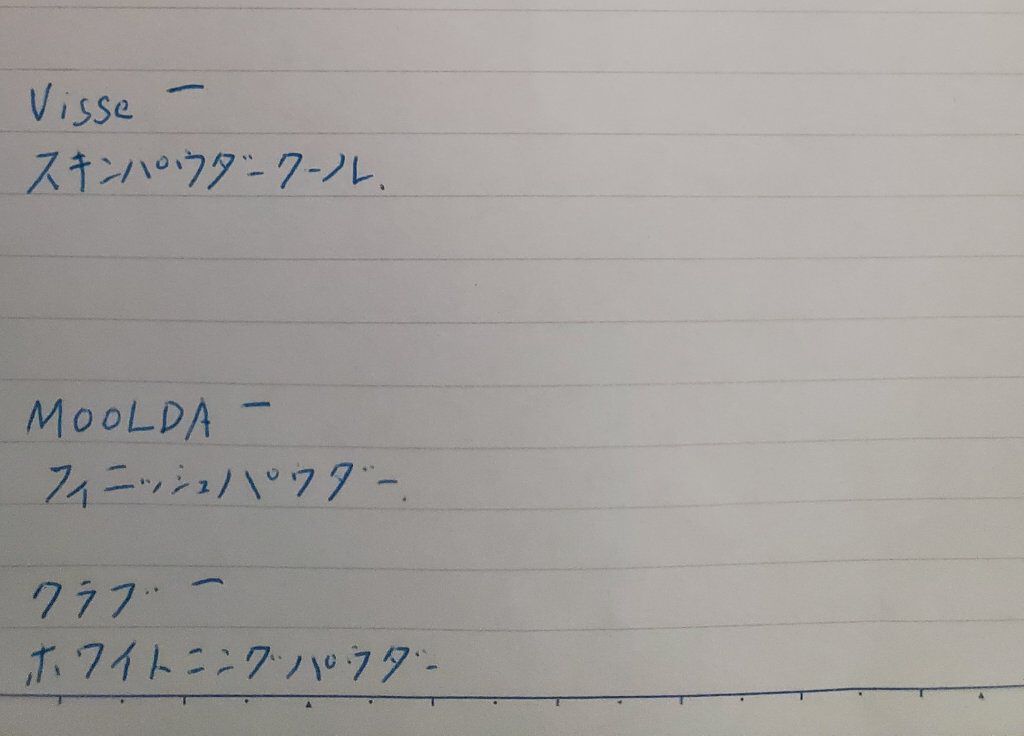 Visse ー
スキンパウダークール.
MOOLDA ー
フィニッシュパウダー.
クラブ ー
ホワイトニングパウダー